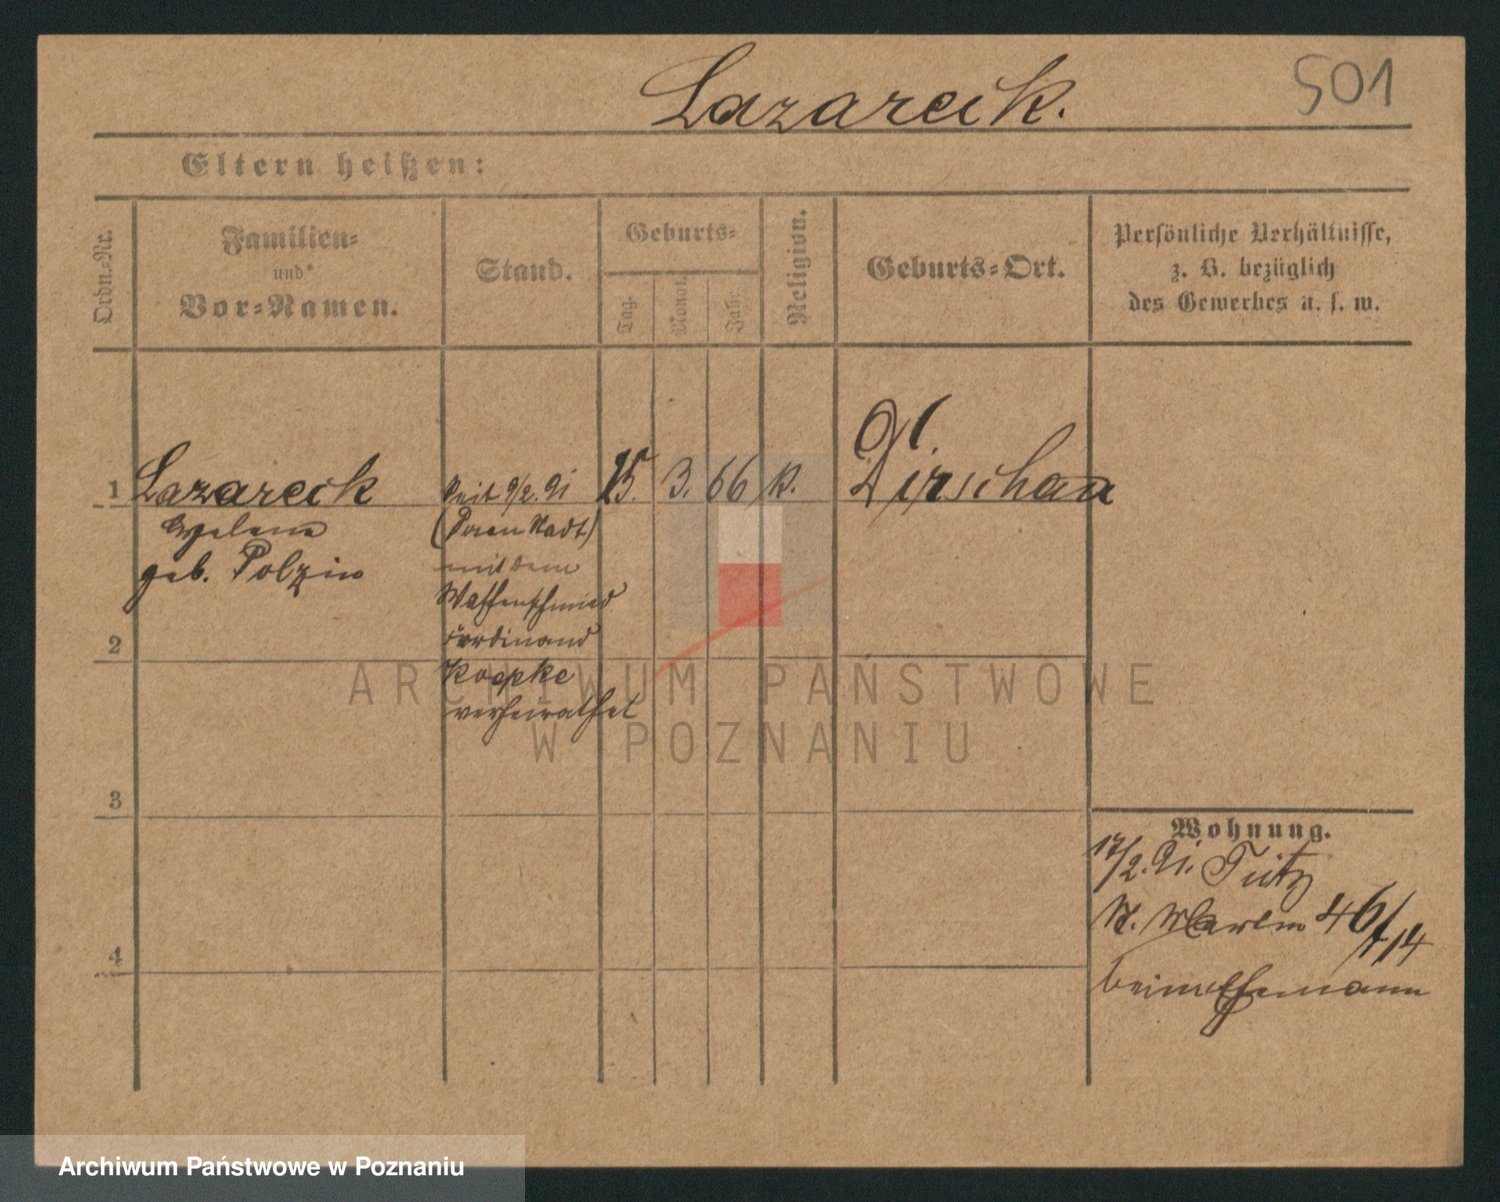 Lazareck.
501
Eltern heißen:
Ordn.-Nr.
Familien-
und
Vor-Namen.
Stand.
Geburts-
Tag.
Monat.
Jahr.
Religion.
Geburts-Ort.
Persönliche Verhältnisse,
z. B. bezüglich
des Gewerbes u. s. w.
1
Lazareck
geb. Polzin
seit 9/2. 91
mit dem
Waffenschmied
Ferdinand
Koepke
verheirathet
15. 3. 66 k.
Dirschau
2
3
4
Wohnung.
17/2. 91.
St. Martin 46/
beim Ehemann
ARCHIWUM PAŃSTWOWE
W POZNANIU
Archiwum Państwowe w Poznaniu